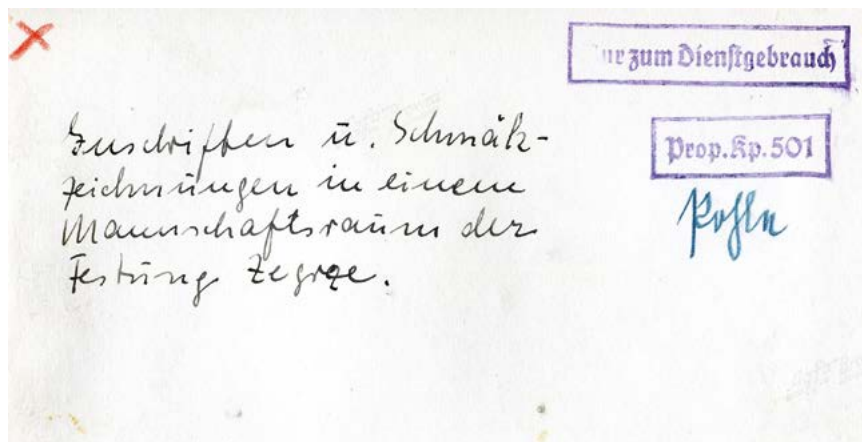 Nur zum Dienstgebrauch
Prop.Kp.501
Inschriften u. Schmäh-
zeichnungen in einem
Mannschaftsraum der
Festung Zegrze.